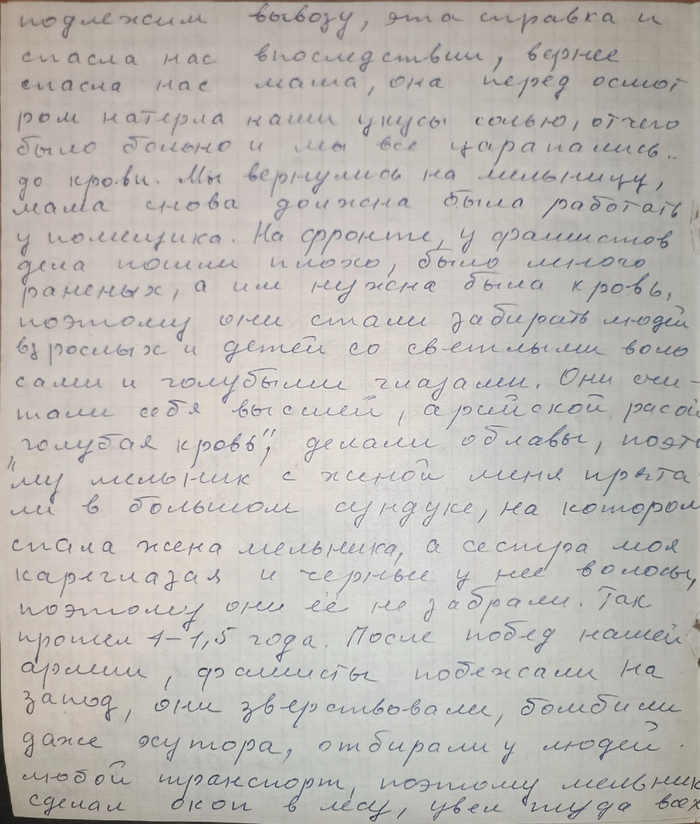 подлежим вывозу, эта справка и
спасла нас впоследствии, вернее
спасла нас мама, она перед осмот
ром натерла наши укусы солью, отчего
было больно и мы все царапались
до крови. Мы вернулись на мельницу,
мама снова должна была работать
у помещика. На фронте, у фашистов
дела пошли плохо, было много
раненых, а им нужна была кровь,
поэтому они стали забирать людей
взрослых и детей со светлыми воло
сами и голубыми глазами. Они счи-
тали себя высшей, арийской расой
"голубая кровь", делали облавы, поэто
му мельник с женой меня прята
ли в большом сундуке, на котором
спала жена мельника, а сестра моя
кареглазая и черные у нее волосы,
поэтому они её не забрали. Так
прошел 1-1,5 года. После побед нашей
армии, фашисты побежали на
запад, они зверствовали, бомбили
даже хутора, отбирали у людей
любой транспорт, поэтому мельник
сделал окоп в лесу, увел туда всех